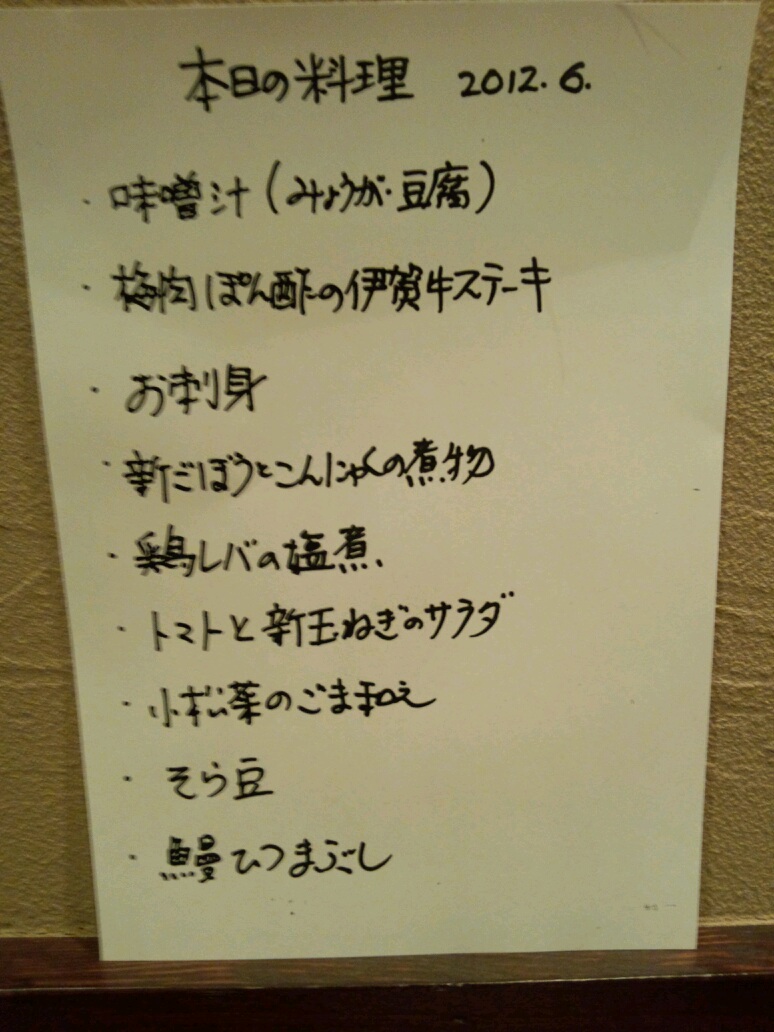 本日の料理 2012.6.
・味噌汁(みょうが・豆腐)
・梅肉ぽん酢の伊賀牛ステーキ
・お刺身
・新ごぼうとこんにゃくの煮物
・鶏レバの塩煮
・トマトと新玉ねぎのサラダ
・小松菜のごま和え
・そら豆
・鰻ひつまぶし